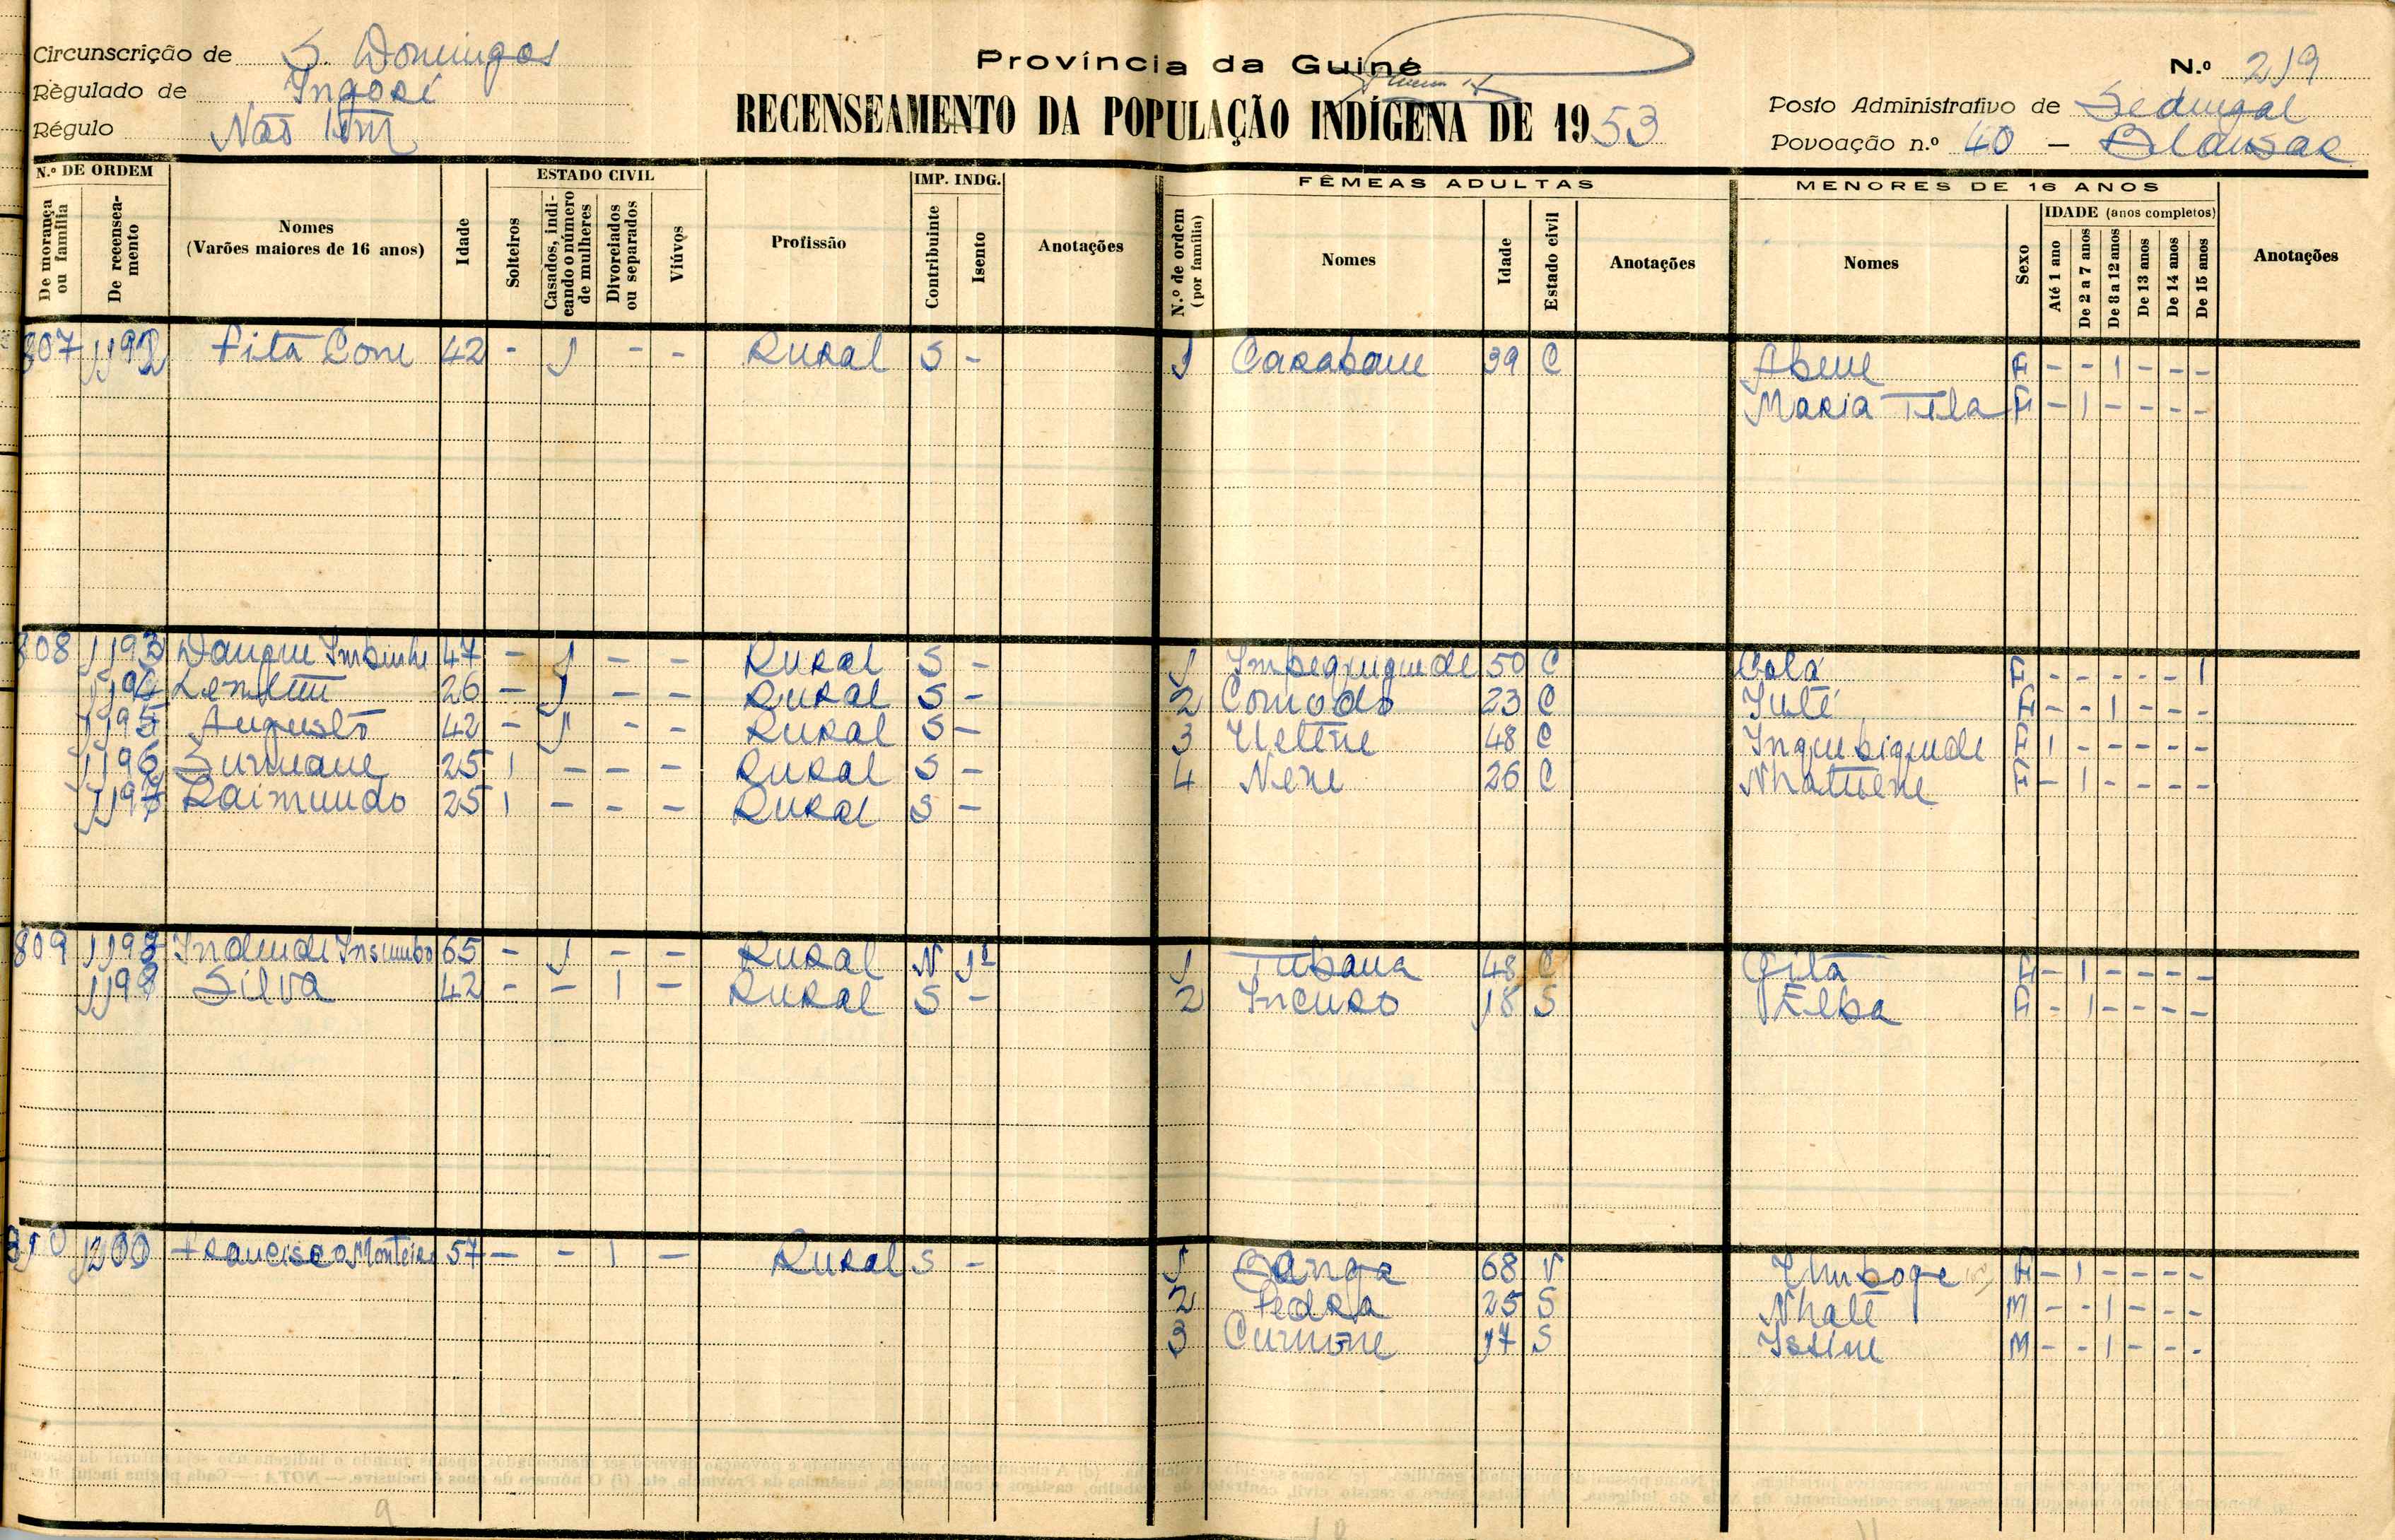 Circunscrição de S. Domingos
Régulado de Ingoré
Régulo Não tem
Província da Guiné
RECENSEAMENTO DA POPULAÇÃO INDÍGENA DE 1953
N.º 219
Posto Administrativo de Sedengal
Povoação n.º 40 –
N.º DE ORDEM
De morança ou família
De recenseamento
Nomes
(Varões maiores de 16 anos)
Idade
ESTADO CIVIL
Solteiros
Casados, indicando o número de mulheres
Divorciados ou separados
Viúvos
Profissão
IMP. INDG.
Contribuinte
Isento
Anotações
FÊMEAS ADULTAS
N.º de ordem (por família)
Nomes
Idade
Estado civil
Anotações
MENORES DE 16 ANOS
Nomes
Sexo
IDADE (anos completos)
Até 1 ano
De 2 a 7 anos
De 8 a 12 anos
De 13 anos
De 14 anos
De 15 anos
Anotações
807 1192 Pita Come 42 - 1 - - Rural S - 1 Carabane 39 C Abene F - - 1 - - -
Maria Tela F - 1 - - - -
808 1193 47 - 1 - - Rural S - 1 50 C Calá F - - - - - 1
1194 26 - 1 - - Rural S - 2 Comodo 23 C F - - 1 - - -
1195 Augusto 42 - 1 - - Rural S - 3 48 C F 1 - - - - -
1196 Surmane 25 1 - - - Rural S - 4 Nene 26 C F - 1 - - - -
1197 Raimundo 25 1 - - - Rural S -
809 1198 65 - 1 - - Rural N 1 1 Tubana 48 C F - 1 - - - -
1199 Silva 42 - - 1 - Rural S - 2 Incuro 18 S Elba F - 1 - - - -
810 1200 Francisco Monteiro 57 - - 1 - Rural S - 1 68 V F - 1 - - - -
2 Pedra 25 S Nhalé M - - 1 - - -
3 17 S M - - 1 - - -